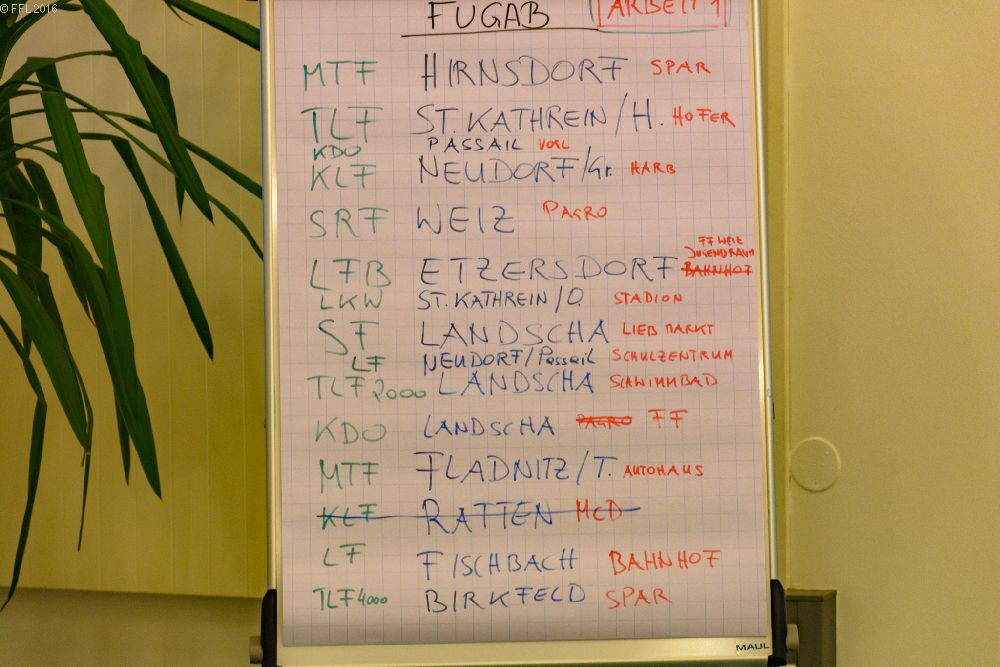 © FFL 2016
FUGAB ARBEIT 1
MTF HIRNSDORF SPAR
TLF ST. KATHREIN/H. HOFER
KDO PASSAIL VOKL
KLF NEUDORF/Gr. HARB
SRF WEIZ PAGRO
FF WEIZ
JUGENDRAUM
LFB ETZERSDORF BAHNHOF
LKW ST. KATHREIN/O STADION
SF LANDSCHA LIEB MARKT
LF NEUDORF/Passail SCHULZENTRUM
TLF 2000 LANDSCHA SCHWIMMBAD
KDO LANDSCHA PAGRO FF
MTF FLADNITZ/T. AUTOHAUS
KLF RATTEN McD
LF FISCHBACH BAHNHOF
TLF 4000 BIRKFELD SPAR
MAUL